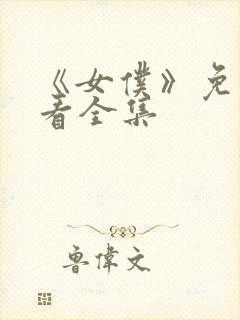 《女僕》免
看全集
魯偉文